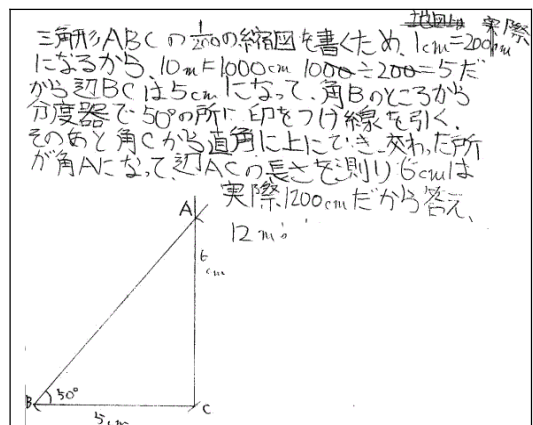 実際
三角形ABCの1/200の縮図を書くため、1cm=200cm
になるから、10m=1000cm 1000÷200=5だ
から辺BCは5cmになって、角Bのところから
分度器で50°の所に印をつけ線を引く、
そのあと角Cから直角に上にいき、交わった所
が角Aになって、辺ACの長さを測り6cmは
実際1200cmだから答え、
12m
A
6
cm
B
50°
C
5cm